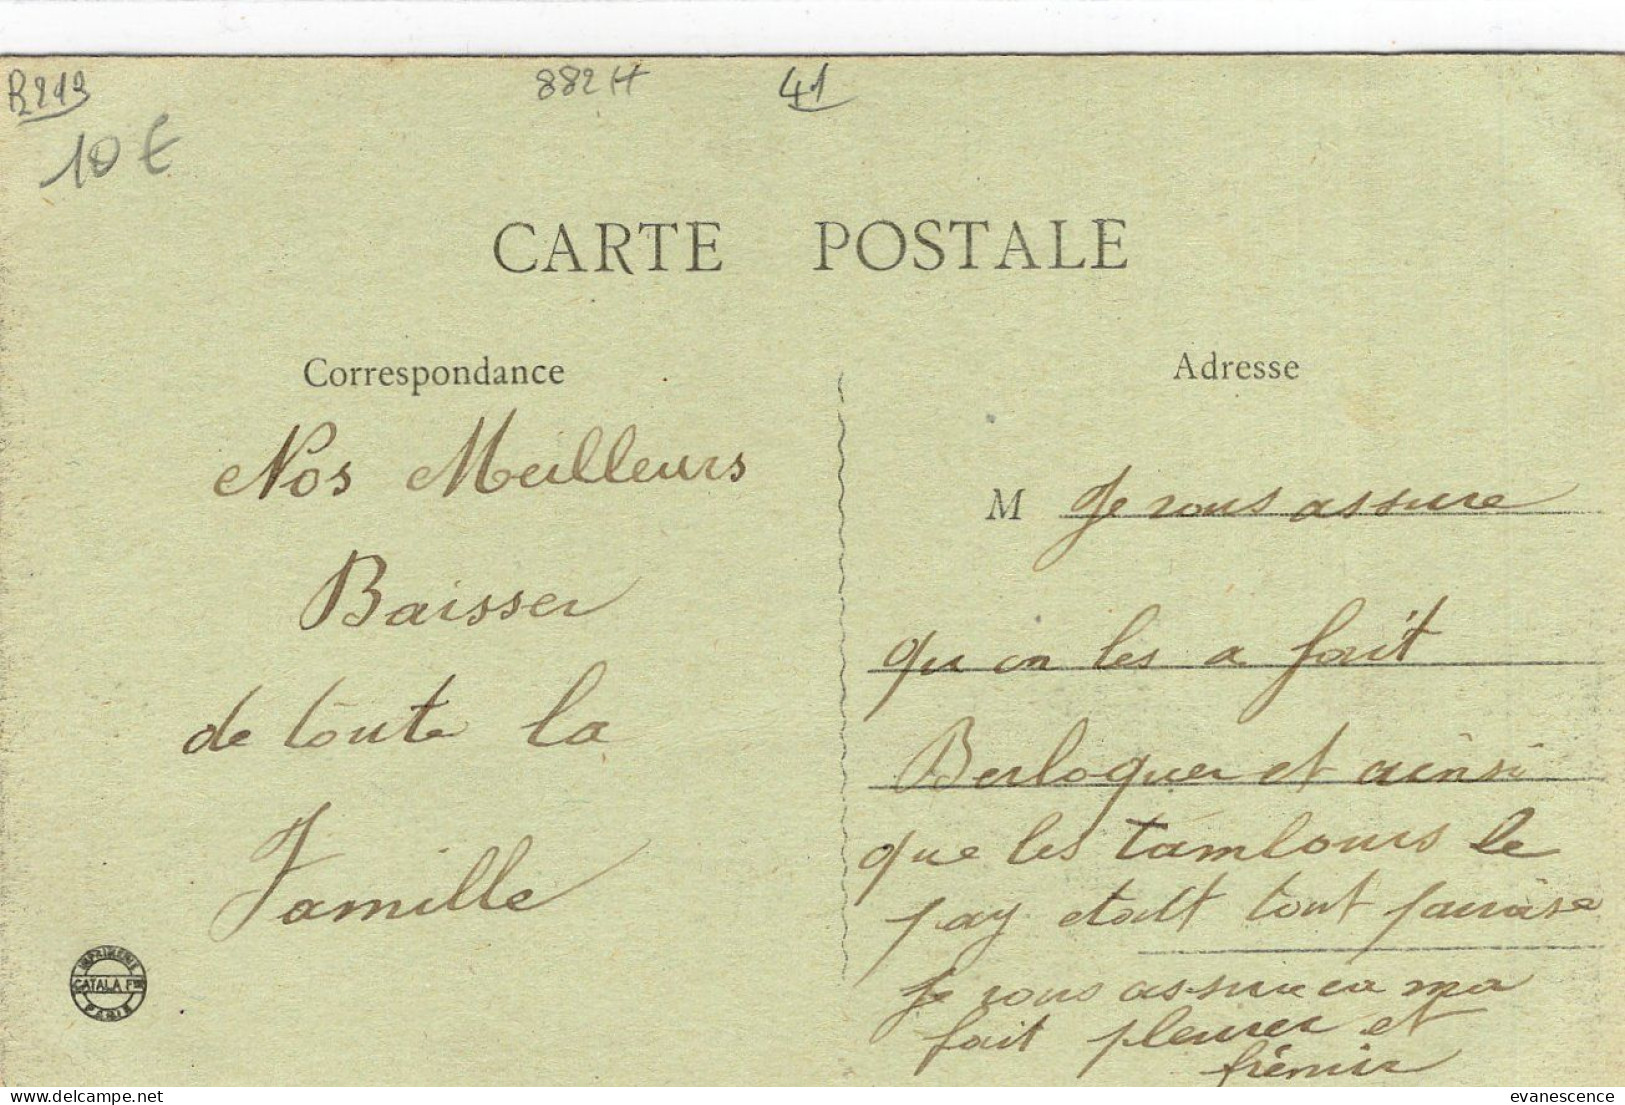 R213
882H
41
10 €
CARTE POSTALE
Correspondance
Nos Meilleurs
Baisser
de toute la
Famille
IMPRIMERIE
CATALA Fres
PARIS
Adresse
M Je vous assure
qu on les a fait
Berloquer et ainsi
que les tambours le
pay etait tout
Je vous assure ca ma
fait pleurer et
frémir
evanescence